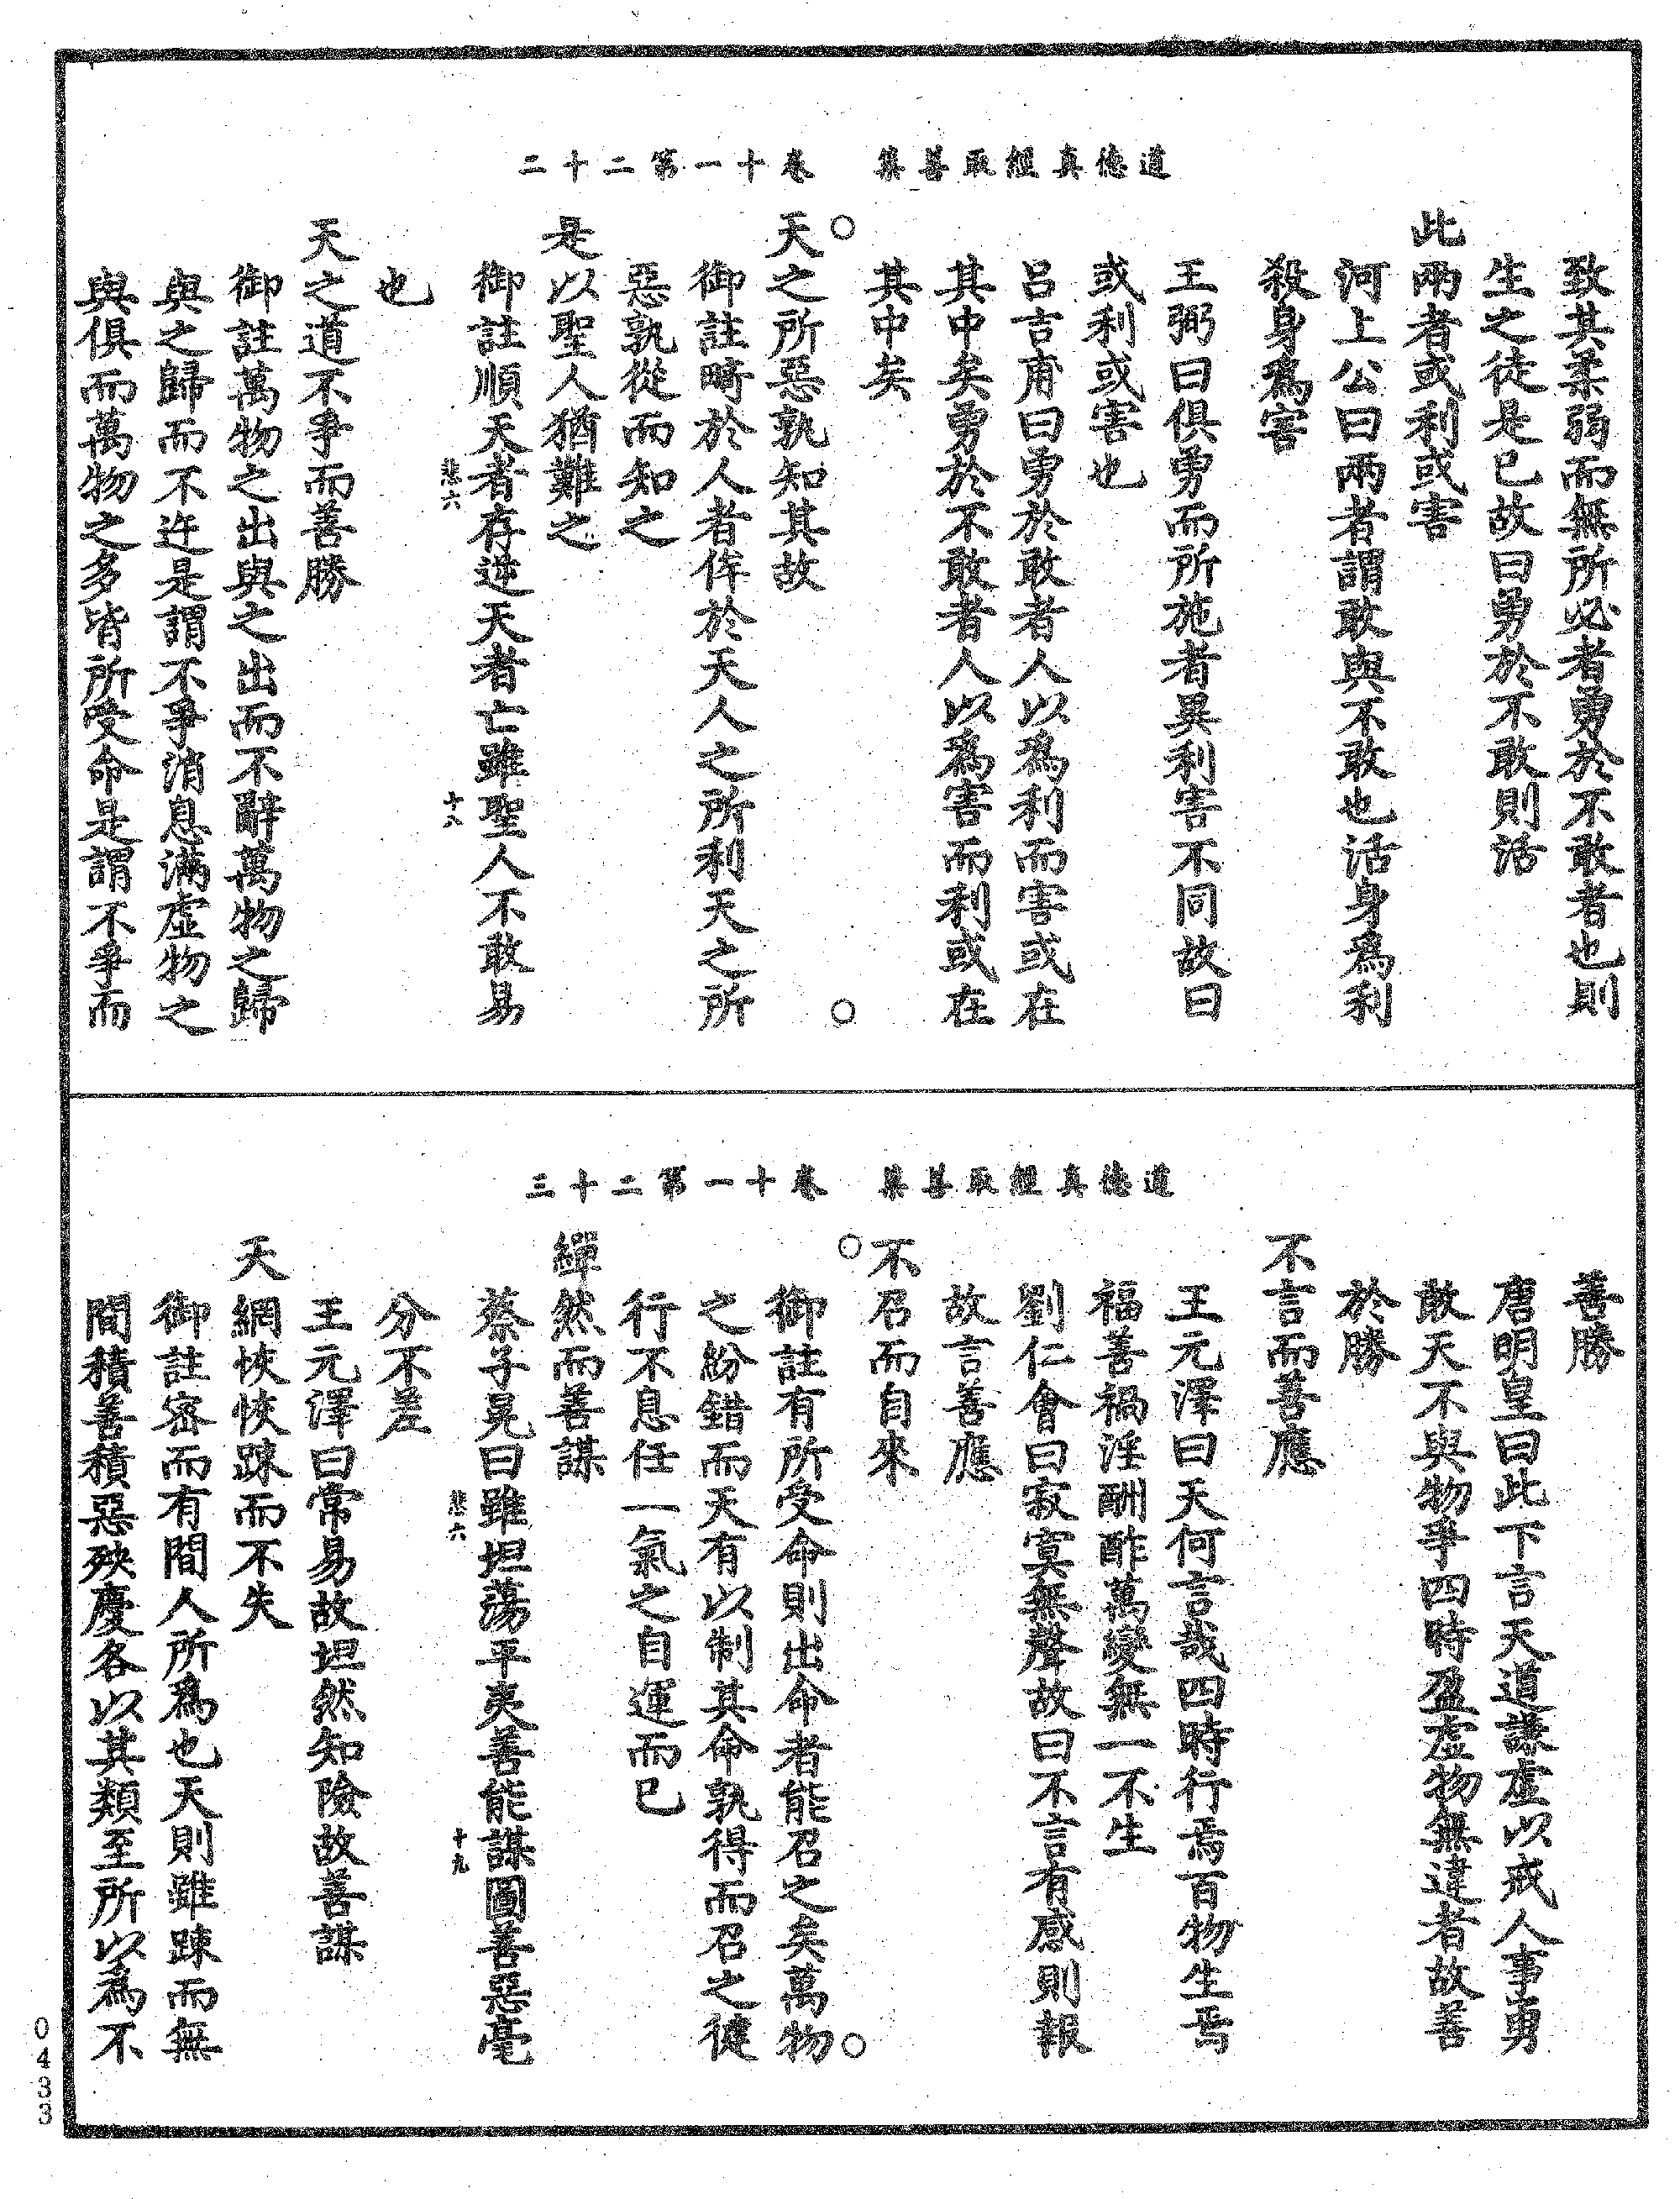 道德真經取善集　卷十一第二十二
致其柔弱而無所必者勇於不敢者也則
生之徒是已故曰勇於不敢則活
此兩者或利或害
河上公曰兩者謂敢與不敢也活身為利
殺身為害
王弼曰俱勇而所施者異利害不同故曰
或利或害也
呂吉甫曰勇於敢者人以為利而害或在
其中矣勇於不敢者人以為害而利或在
其中矣
○　○
天之所惡孰知其故
御註畸於人者侔於天人之所利天之所
惡孰從而知之
是以聖人猶難之
御註順天者存逆天者亡雖聖人不敢易
悲六　十八
也
天之道不爭而善勝
御註萬物之出與之出而不辭萬物之歸
與之歸而不迕是謂不爭消息滿虛物之
與俱而萬物之多皆所受命是謂不爭而
道德真經取善集　卷十一第二十三
善勝
唐明皇曰此下言天道謙虛以戒人事勇
敢天不與物爭四時盈虛物無違者故善
於勝
不言而善應
王元澤曰天何言哉四時行焉百物生焉
福善禍淫酬酢萬變無一不生
劉仁會曰寂寞無聲故曰不言有感則報
故言善應
不召而自來
○　○
御註有所受命則出命者能召之矣萬物
之紛錯而天有以制其命孰得而召之健
行不息任一氣之自運而已
繟然而善謀
蔡子晃曰雖坦蕩平夷善能謀圖善惡毫
悲六　十九
分不差
王元澤曰常易故坦然知險故善謀
天網恢恢踈而不失
御註密而有間人所為也天則雖踈而無
間積善積惡殃慶各以其類至所以為不
0433